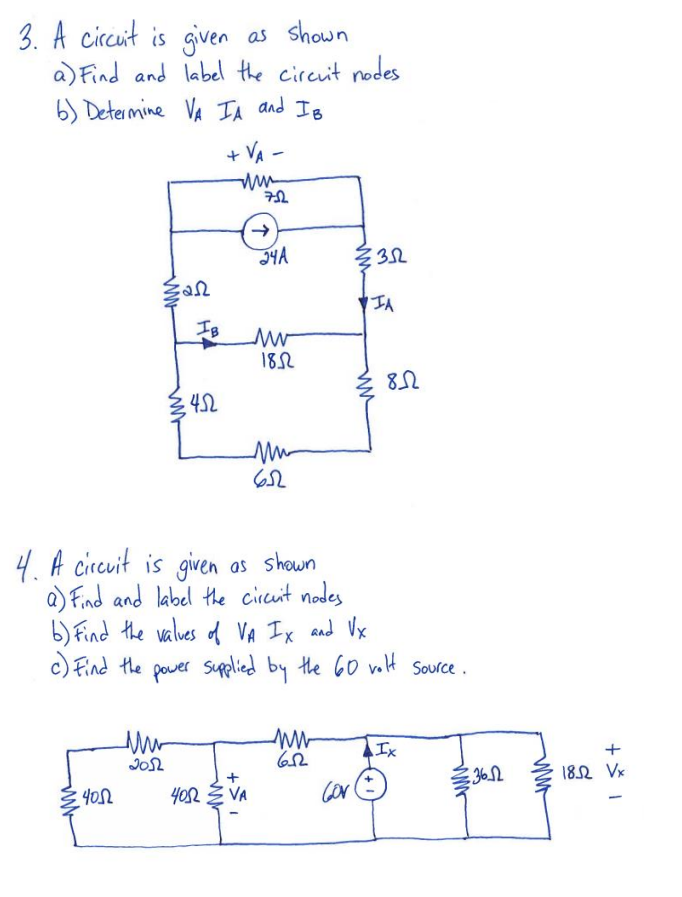 3. A circuit is given as shown
a) Find and label the circuit nodes
b) Determine VA IA and IB
+ VA -
7Ω
→
24A
3Ω
2Ω
IA
IB
18Ω
8Ω
4Ω
6Ω
4. A circuit is given as shown
a) Find and label the circuit nodes
b) Find the values of VA Ix and Vx
c) Find the power supplied by the 60 volt source.
20Ω
6Ω
Ix
+
40Ω
40Ω
+
VA
-
60V
+
-
36Ω
18Ω
Vx
-